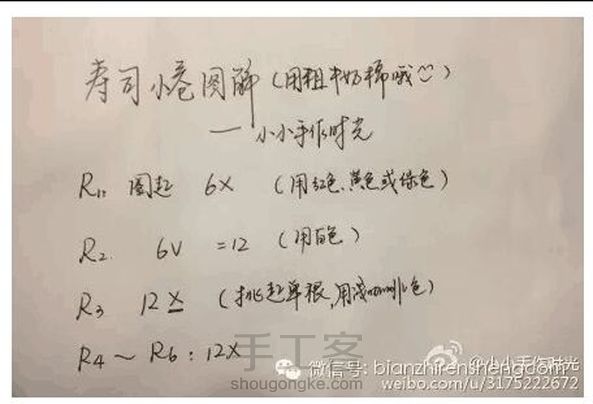 寿司小卷图解(用粗牛奶棉哦)
— 小小手作时光
R1: 圈起 6X (用红色、黄色或绿色)
R2 6V =12 (用白色)
R3 12X (挑起单根,用咖啡色)
R4~R6: 12X
手工客
shougongke.com
微信号: bianzhirenshengdom
@小小手作时光
weibo.com/u/3175222672